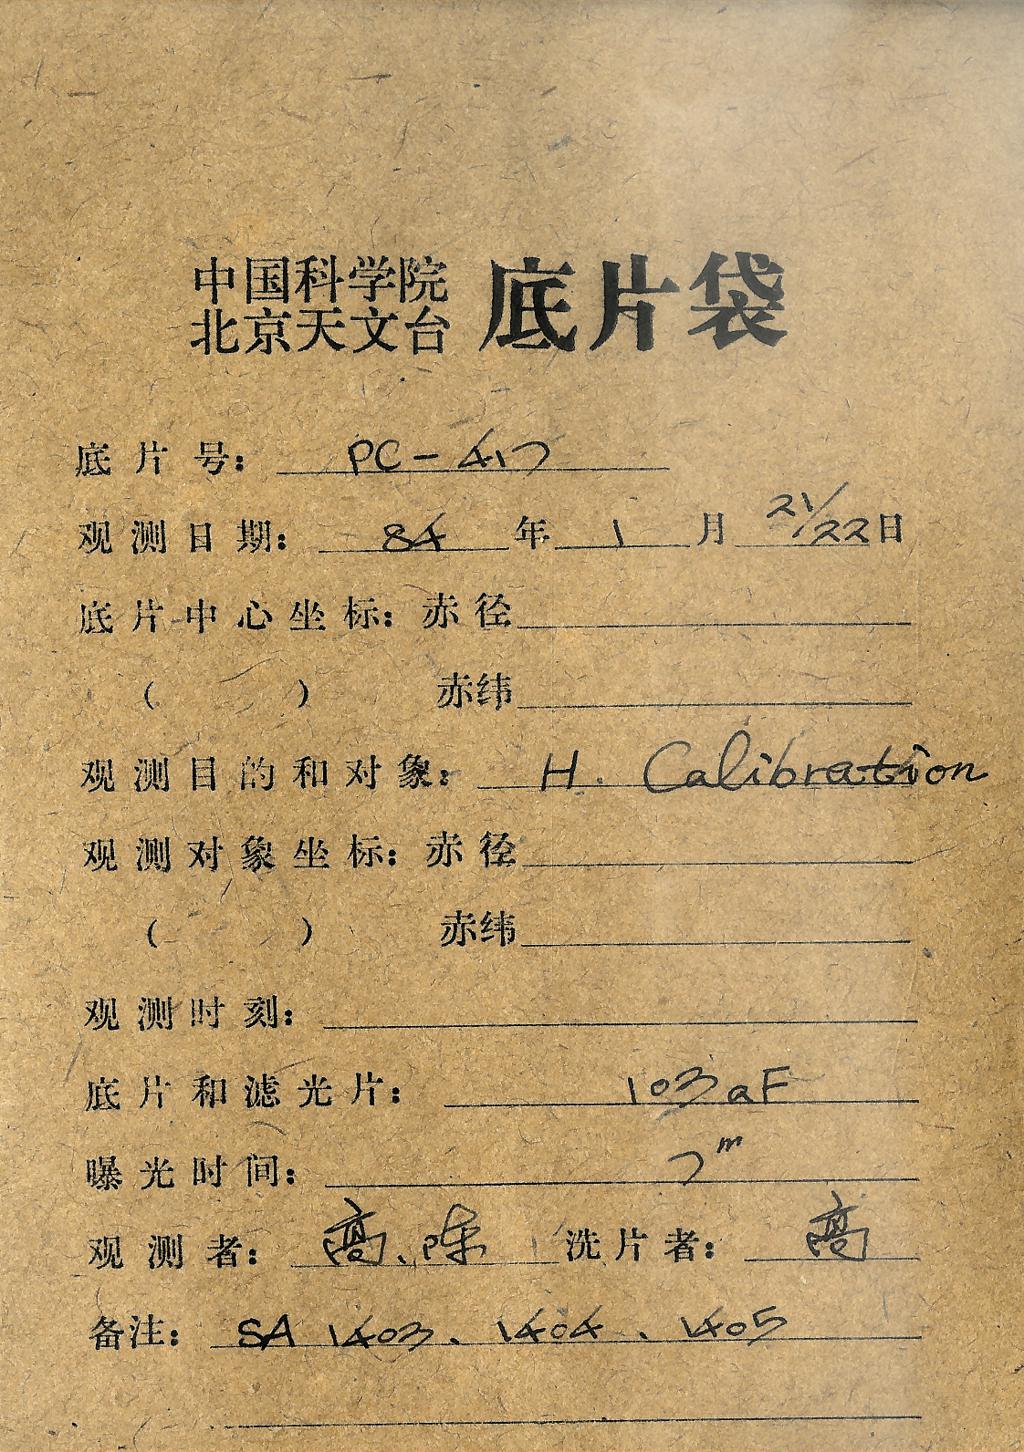 中国科学院
北京天文台 底片袋
底片号: PC-417
观测日期: 84年1月21/22日
底片中心坐标: 赤径
( ) 赤纬
观测目的和对象: H. Calibration
观测对象坐标: 赤径
( ) 赤纬
观测时刻:
底片和滤光片: 103aF
曝光时间: 7m
观测者: 高、陈 洗片者: 高
备注: SA 1403、1404、1405